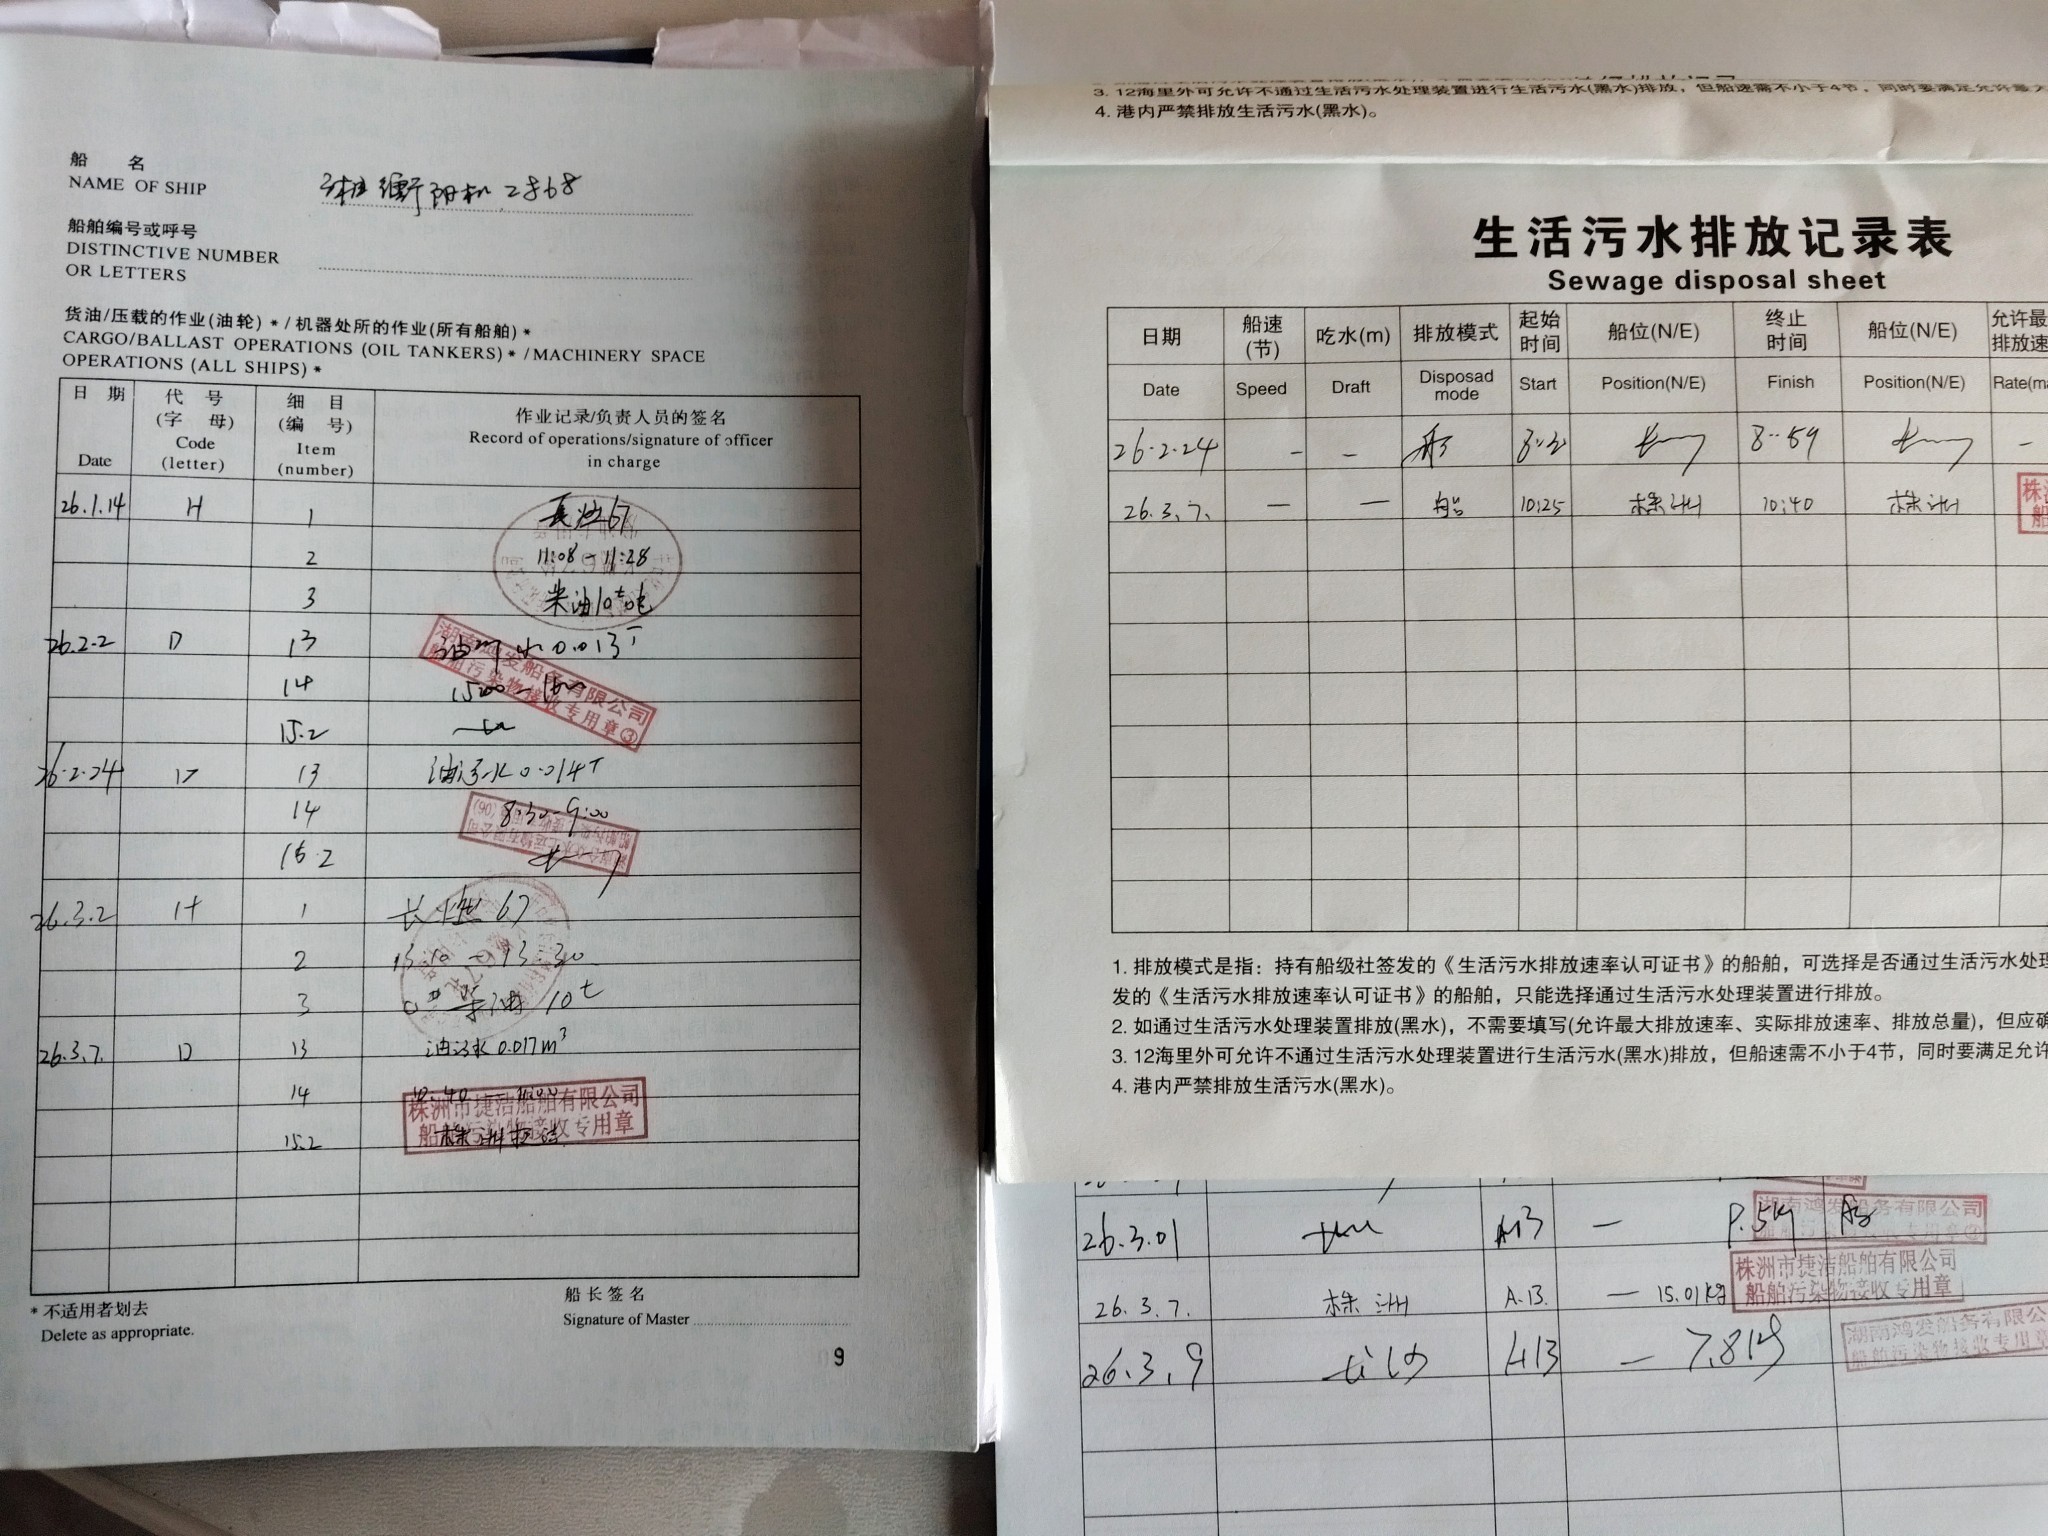 船 名
NAME OF SHIP
衡阳机 2868
船舶编号或呼号
DISTINCTIVE NUMBER
OR LETTERS
货油/压载的作业(油轮)*/机器处所的作业(所有船舶)*
CARGO/BALLAST OPERATIONS (OIL TANKERS)*/MACHINERY SPACE
OPERATIONS (ALL SHIPS)*
日 期 Date
代 号 (字 母) Code (letter)
细 目 (编 号) Item (number)
作业记录/负责人员的签名
Record of operations/signature of officer
in charge
26.1.14 H 1 67
2 11:08-11:28
3 柴油10吨
26.2.2 D 13 油污水0.013T
湖南鸿发船务有限公司
船舶污染物接收专用章③
14
15.2
26.2.24 D 13 油污水0.014T
14 8:30-9:00
15.2
26.3.2 H 1 长 67
2 13:10-13:30
3 0# 柴油 10t
26.3.7. D 13 油污水0.017m³
14 10:40
株洲市捷洁船舶有限公司
船舶污染物接收专用章
15.2 株洲
*不适用者划去
Delete as appropriate.
船长签名
Signature of Master
9
3. 12海里外可允许不通过生活污水处理装置进行生活污水(黑水)排放，但船速需不小于4节，同时要满足允许最大
4. 港内严禁排放生活污水(黑水)。
生活污水排放记录表
Sewage disposal sheet
日期 船速(节) 吃水(m) 排放模式 起始时间 船位(N/E) 终止时间 船位(N/E) 允许最 排放速
Date Speed Draft Disposad mode Start Position(N/E) Finish Position(N/E) Rate(ma
26.2.24 - - 8:59 -
26.3.7. - - 船 10:25 株洲 10:40 株洲
株洲
船
1. 排放模式是指：持有船级社签发的《生活污水排放速率认可证书》的船舶，可选择是否通过生活污水处理
发的《生活污水排放速率认可证书》的船舶，只能选择通过生活污水处理装置进行排放。
2. 如通过生活污水处理装置排放(黑水)，不需要填写(允许最大排放速率、实际排放速率、排放总量)，但应确
3. 12海里外可允许不通过生活污水处理装置进行生活污水(黑水)排放，但船速需不小于4节，同时要满足允许
4. 港内严禁排放生活污水(黑水)。
26.3.01 A.13 -
湖南鸿发船务有限公司
26.3.7. 株洲 A.13. - 15.01kg
株洲市捷洁船舶有限公司
船舶污染物接收专用章
26.3.9 长沙 A13 - 7.8kg
湖南鸿发船务有限公
船舶污染物接收专用章